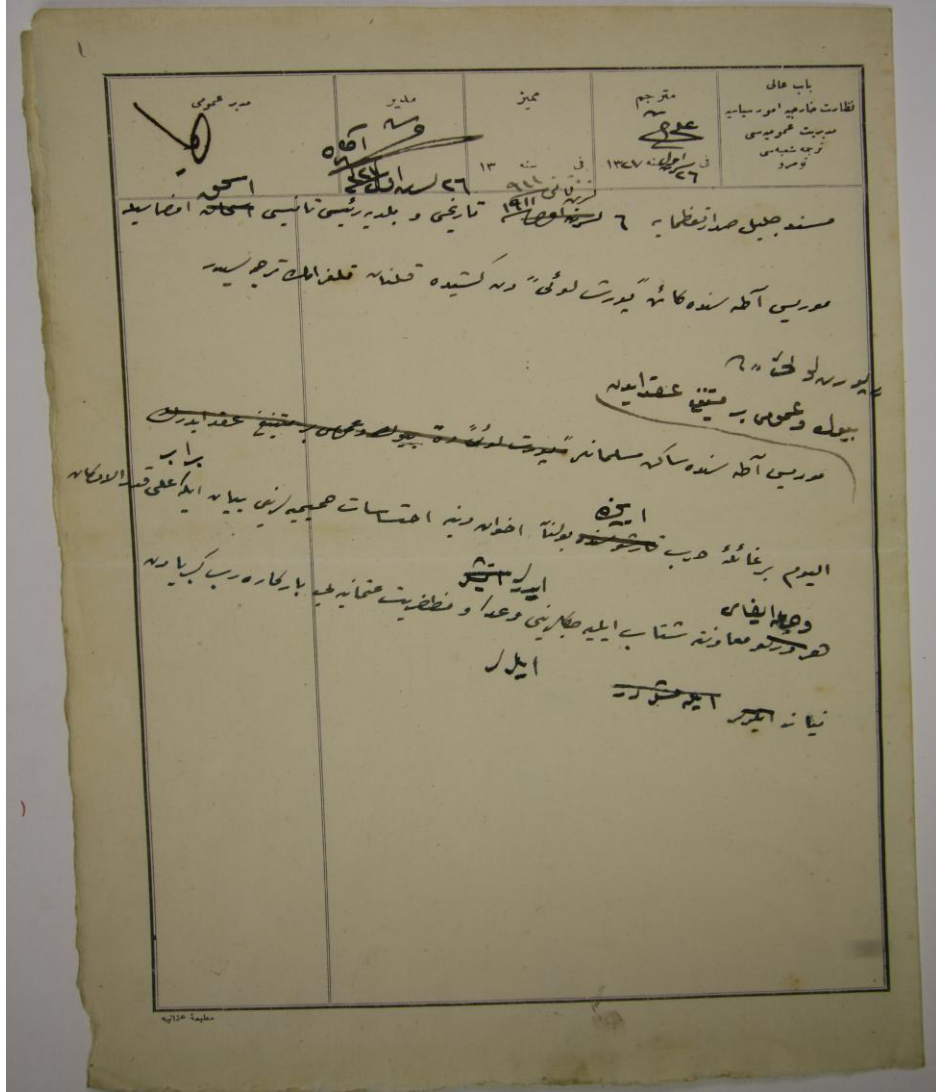 باب عالی
نظارت خارجیه امور سیاسیه
مدیریت عمومیه‌سی
ترجمه شعبه‌سی
نومرو
مترجم
فی ٢٦ سنه ١٣٢٧
ممیز
فی سنه ١٣
مدیر
٢٦
مدیر عمومی
مسند جلیل صدارتعظمایه ٦ تشرین ثانی ٩١١ تاریخی و بلدیه رئیس ثانیسی اسحق امضاسیله
موریس آطه سنده کائن "پورت لوئی" دن کشیده قلنان تلغرافك ترجمه سیدر
"پورت لوئی" ده
بیوك و عمومی بر میتینغ عقد ایدن
موریس آطه سنده ساکن مسلمانلر "پورت لوئی" ده بیوك و عمومی بر میتینغ عقد ایدرك
الیوم بر غائلهٔ حرب قارشوسنده ایچنده بولنان اخوان دینه احتساسات صمیمیه لرینی بیان ایله برابر علی قدر الامکان
هر درلو معاونته شتاب ایلیه جکلرینی وعد ایدرلر و مظفریت عثمانیه یی بارکاه رب کبریادن
نیاز ایدرلر ایلرلر
مطبعه عثمانیه